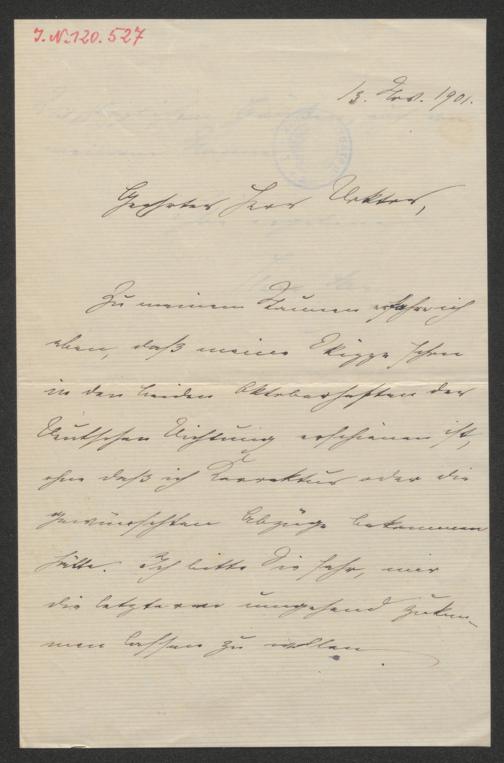 J.N. 120.527
13. Nov. 1901.
Geehrter Herr Doktor,
Zu meinem Staunen erfahre ich
eben, daß meine Skizze schon
in den beiden Oktoberheften der
Deutschen Dichtung erschienen ist,
ohne daß ich Korrektur oder die
gewünschten Abzüge bekommen
hätte. Ich bitte Sie sehr, mir
die letzteren umgehend zukom-
men lassen zu wollen